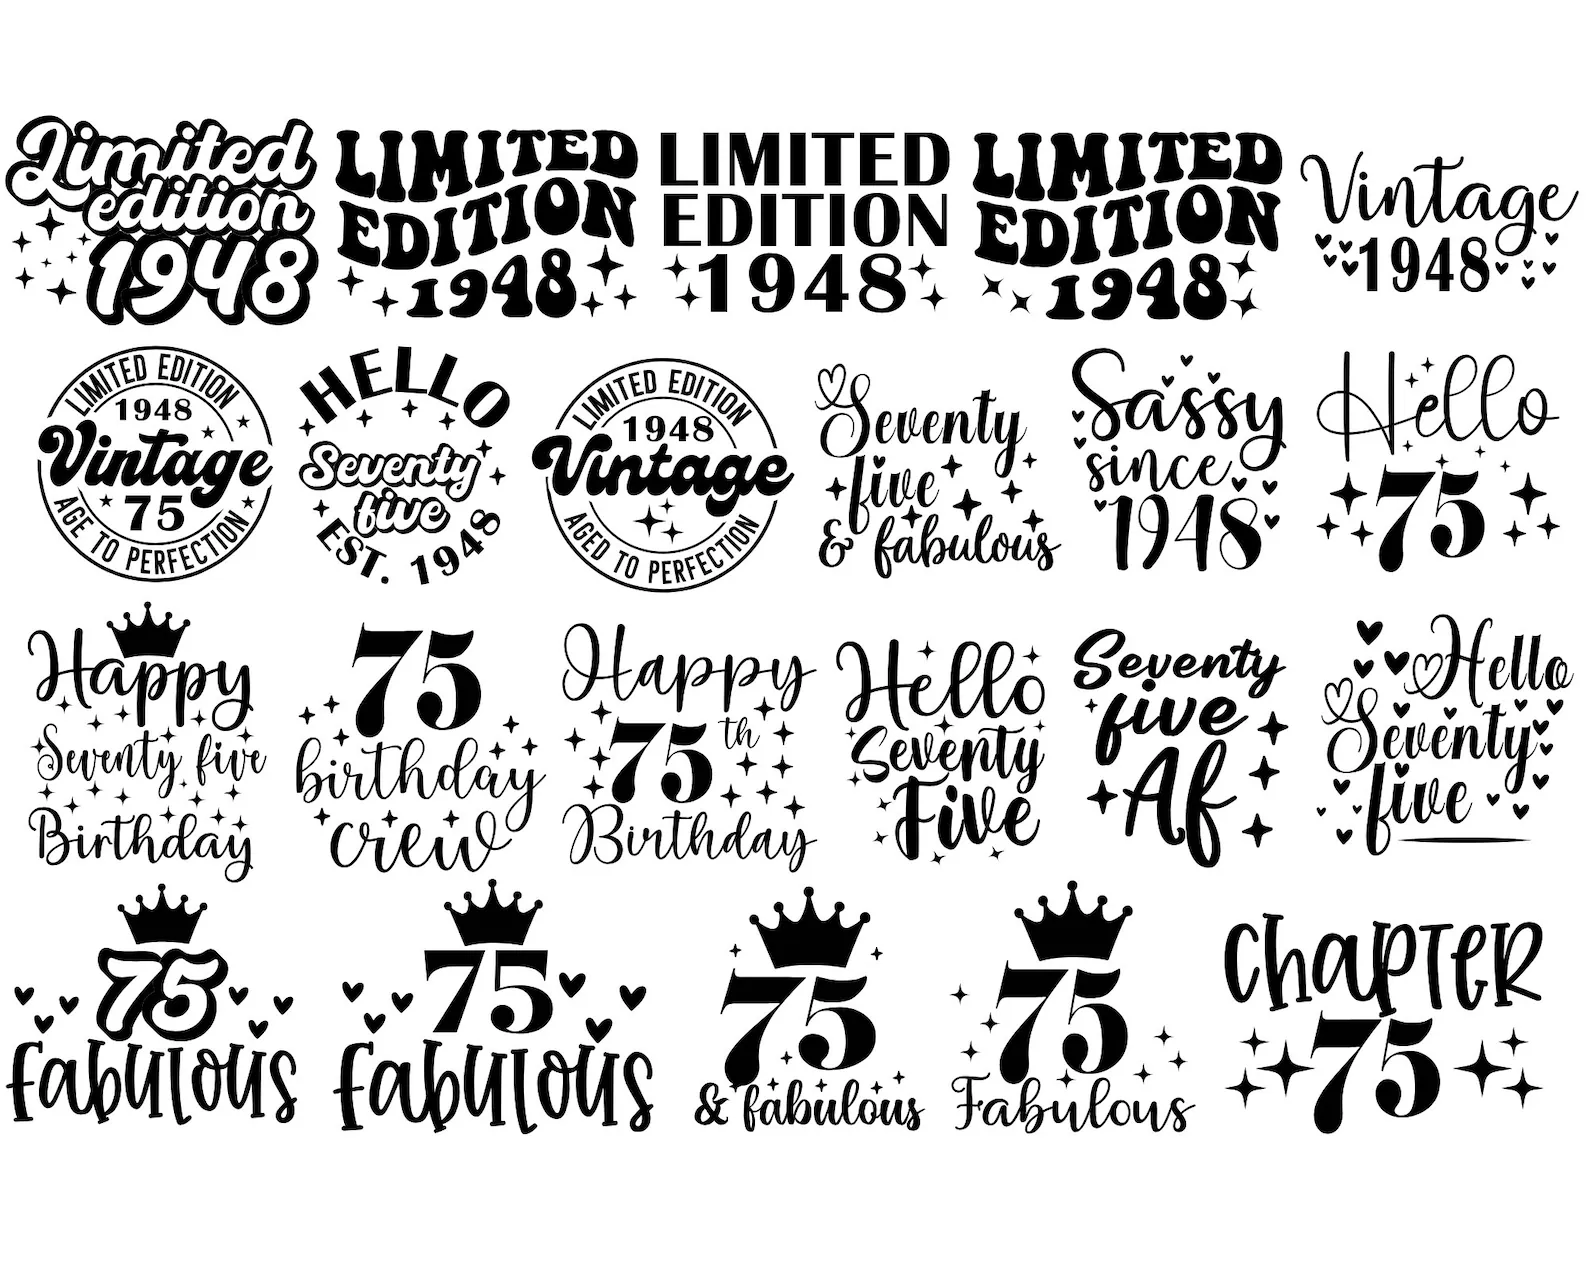 Limited
edition
1948
LIMITED
EDITION
1948
LIMITED
EDITION
1948
LIMITED
EDITION
1948
Vintage
1948
LIMITED EDITION
1948
Vintage
75
AGE TO PERFECTION
HELLO
Seventy
five
EST. 1948
LIMITED EDITION
1948
Vintage
AGED TO PERFECTION
Seventy
five
& fabulous
Sassy
since
1948
Hello
75
Happy
Seventy five
Birthday
75
birthday
crew
Happy
75th
Birthday
Hello
Seventy
Five
Seventy
five
Af
Hello
Seventy
five
75
fabulous
75
fabulous
75
& fabulous
75
Fabulous
chapter
75